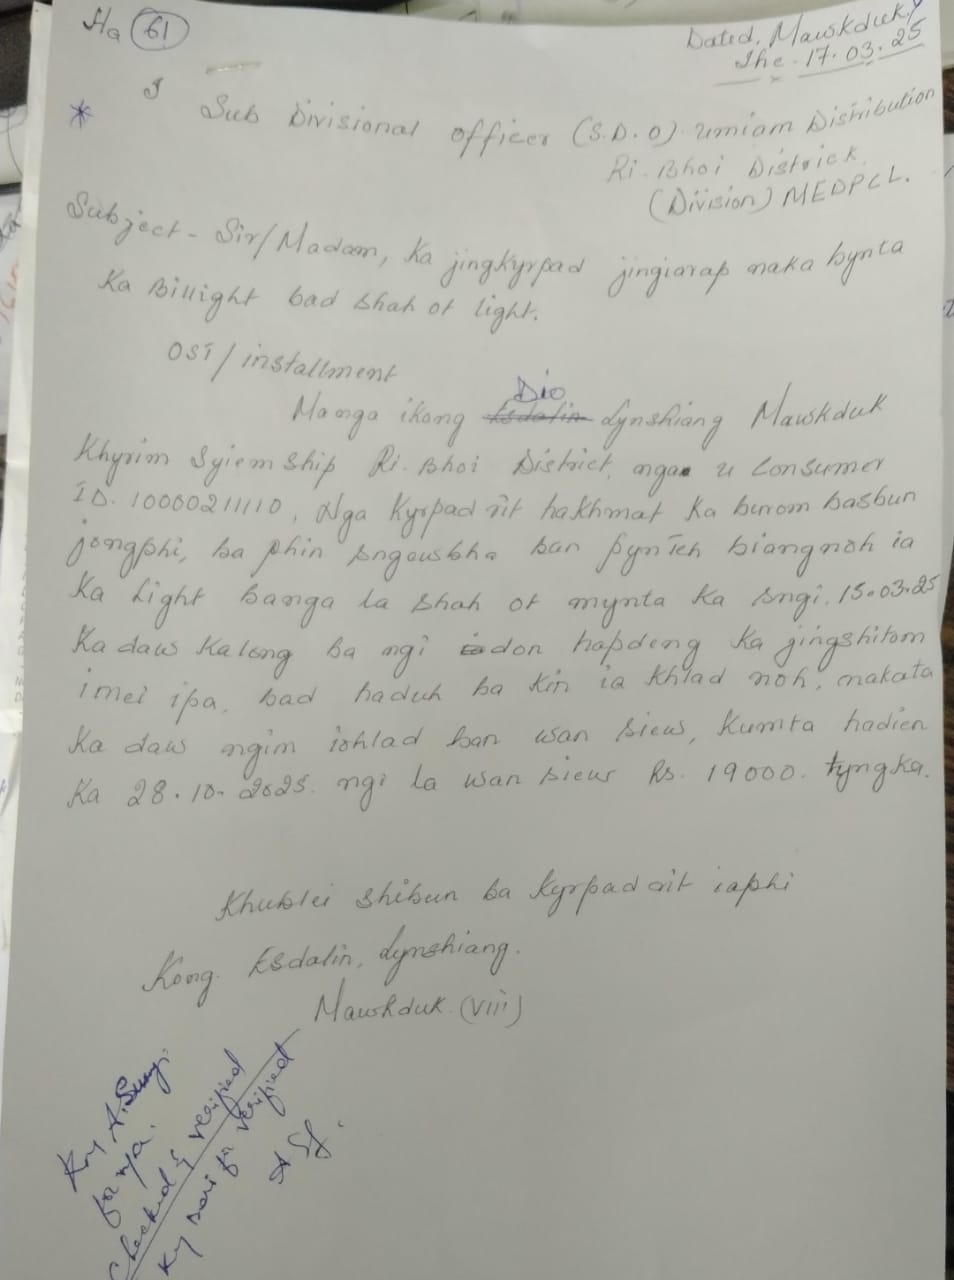 Ha 61
Dated, Mawkduk,
The. 17.03.25
Sub Divisional officer (S.D.O) umiam Distribution
Ri. Bhoi Districk.
(Division) MEDPCL.
Subject - Sir/Madam, Ka jingkyrpad jingiarap naka bynta
Ka Billight bad shah ot light.
OST/installment
Manga ikong Dio Lynshiang Mawkduk
Khyrim Syiem ship Ri. Bhoi District, nga u Consumer
ID. 10000211110, Nga Kyrpad eit hakhmat Ka burom basbun
jongphi, ba phin sngewbha ban pynieh biangnoh ia
Ka Light banga la shah ot mynta Ka sngi. 15.03.25
Ka daw Kalong ba ngi don hapdeng Ka jingshitom
imei ipa, bad haduh ba kin ia khlad noh, nakata
Ka daw ngim iohlad ban wan siew, Kumta hadien
Ka 28.10.2025. ngi la wan siew Rs. 19000. tyngka.
Khublei shibun ba kyrpad eit iaphi
Kong. Esdalin, Lynshiang.
Mawkduk. (viii)
for n/a.
Checked & verified
for verified